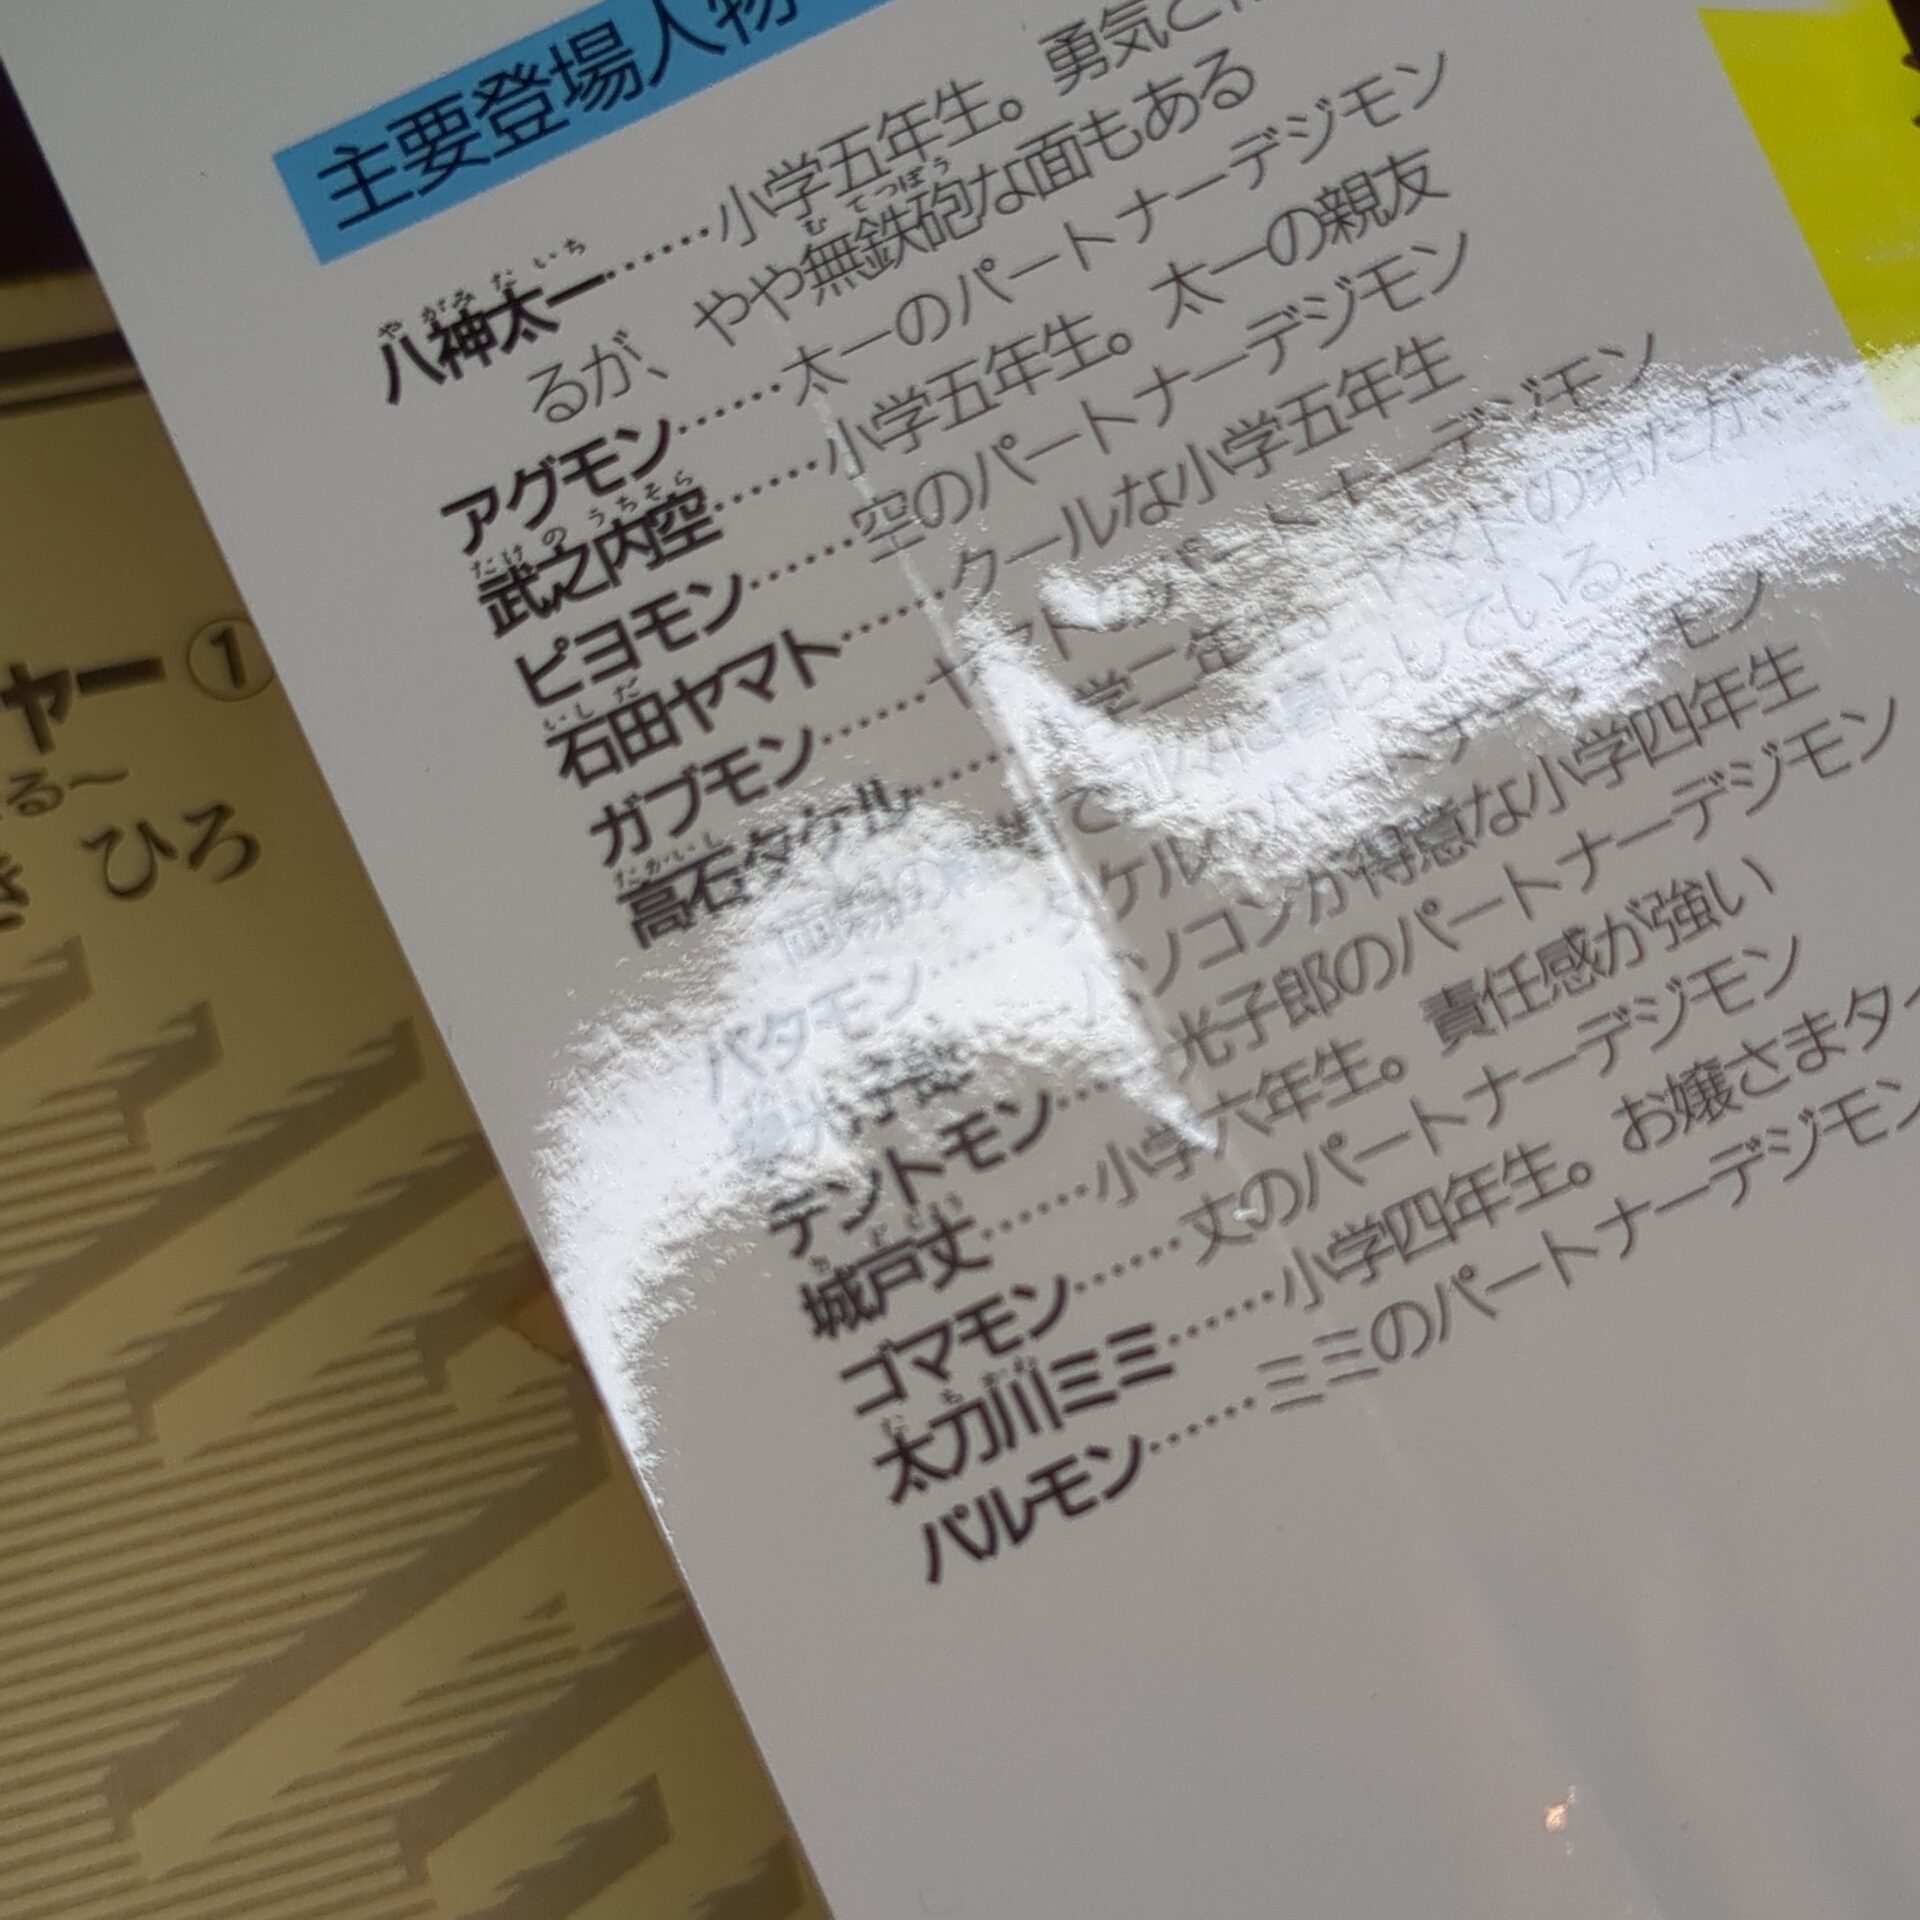 主要登場人物
八神太一……小学五年生。勇気と
るが、やや無鉄砲な面もある
アグモン……太一のパートナーデジモン
武之内空……小学五年生。太一の親友
ピヨモン……空のパートナーデジモン
石田ヤマト……クールな小学五年生
ガブモン……ヤマトのパートナーデジモン
高石タケル……学二年生。ヤマトの弟だが、
両親の で 暮らしている
パタモン……タケルのパートナーデジモン
光子郎……パソコンが得意な小学四年生
テントモン……光子郎のパートナーデジモン
城戸丈……小学六年生。責任感が強い
ゴマモン……丈のパートナーデジモン
太刀川ミミ……小学四年生。お嬢さまタイ
パルモン……ミミのパートナーデジモン
ャー①
る〜
き ひろ